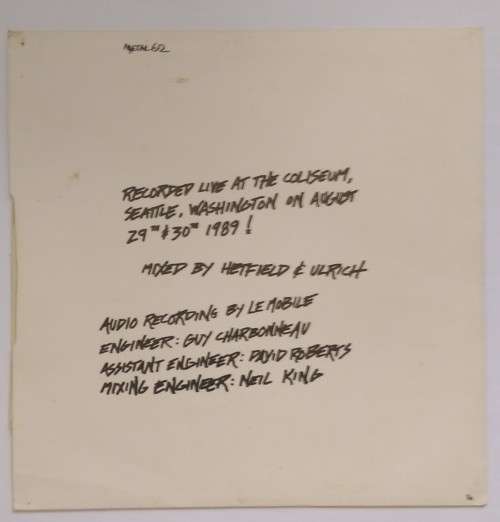 METAL 612
RECORDED LIVE AT THE COLISEUM,
SEATTLE, WASHINGTON ON AUGUST
29TH & 30TH 1989!
MIXED BY HETFIELD & ULRICH
AUDIO RECORDING BY LE MOBILE
ENGINEER: GUY CHARBONNEAU
ASSISTANT ENGINEER: DAVID ROBERTS
MIXING ENGINEER: NEIL KING